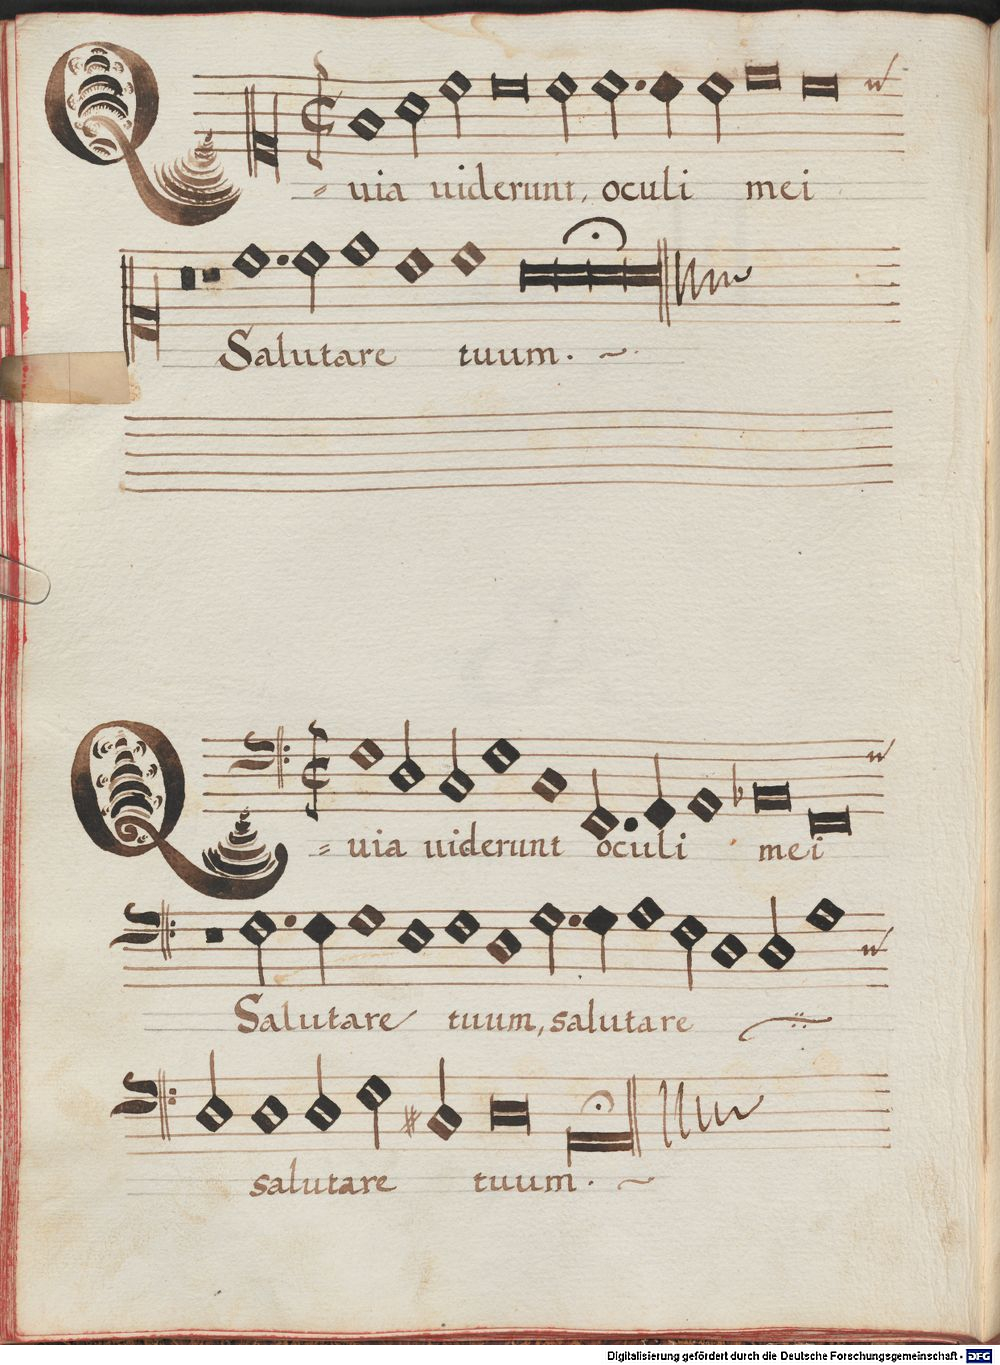 Quia uiderunt, oculi mei
Salutare tuum.
Quia uiderunt oculi mei
Salutare tuum, salutare
salutare tuum.
Digitalisierung gefördert durch die Deutsche Forschungsgemeinschaft - DFG